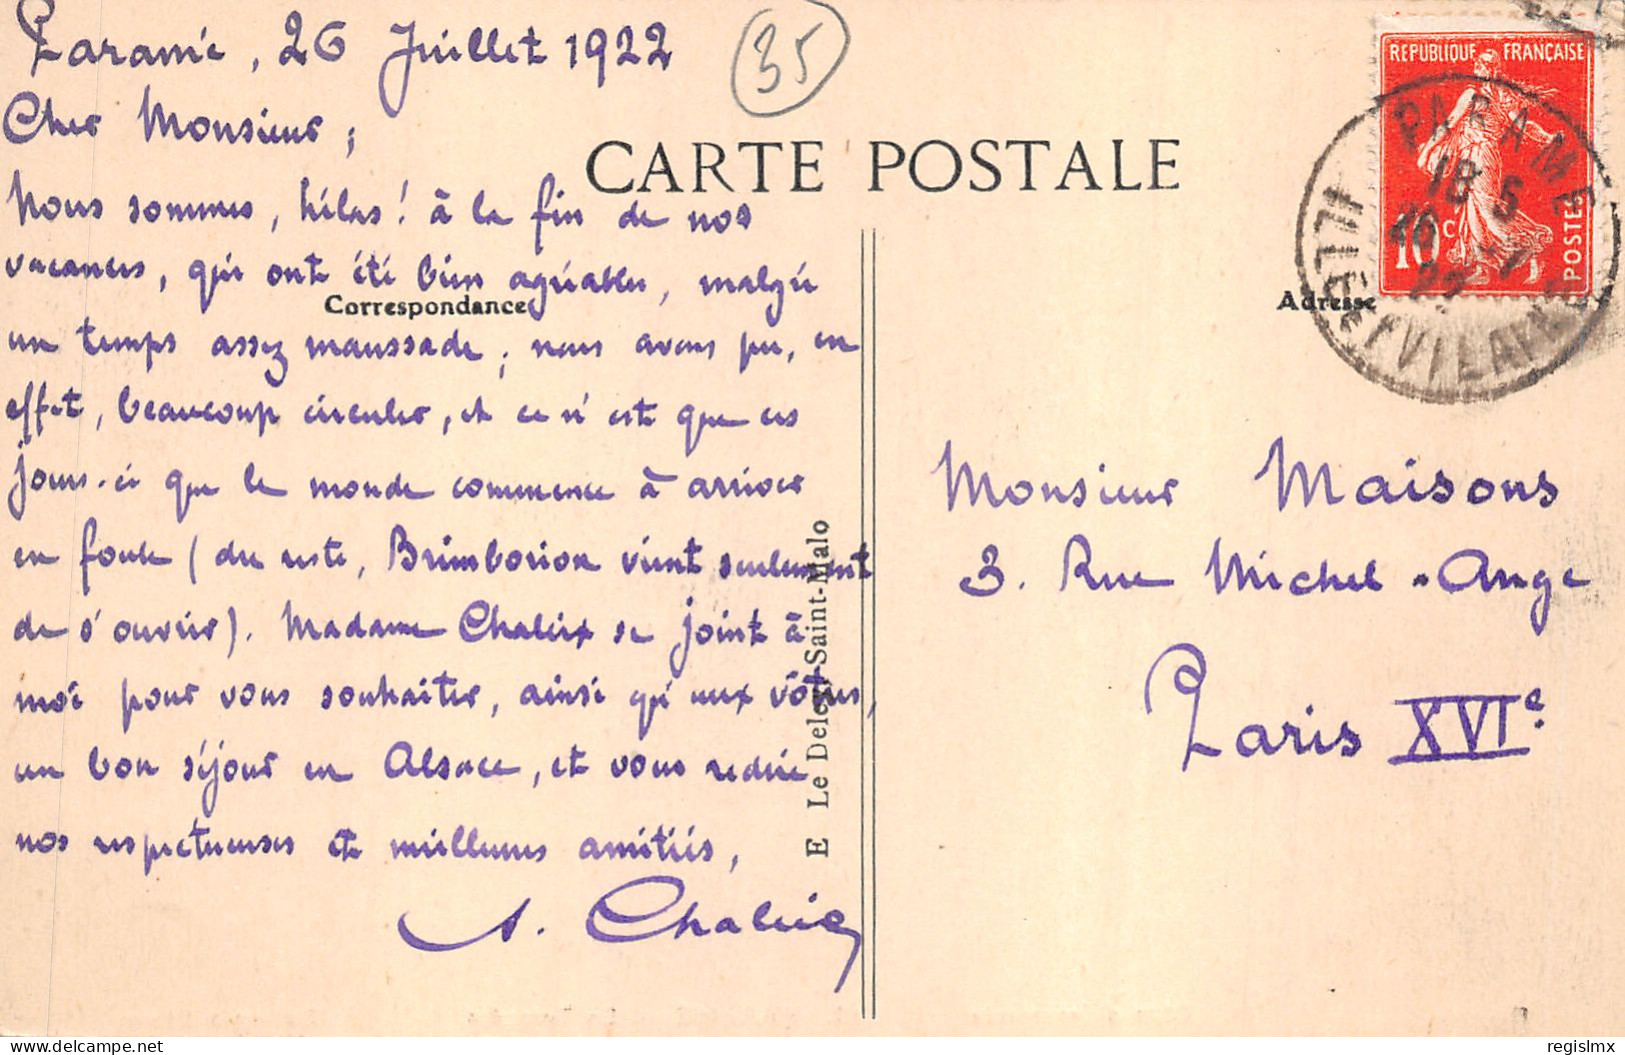 Paramé, 26 Juillet 1922
35
Cher Monsieur,
CARTE POSTALE
Nous sommes, hélas! à la fin de nos
vacances, qui ont été bien agréables, malgré
Correspondance
un temps assez maussade; nous avons pu, en
effet, beaucoup circuler, et ce n'est que ces
jours-ci que le monde commence à arriver
en foule (du reste, Brimborion vient seulement
de s'ouvrir). Madame Chaleix se joint à
moi pour vous souhaiter, ainsi qu'aux vôtres,
un bon séjour en Alsace, et vous redire
nos respectueuses et meilleures amitiés,
A. Chaleix
E Le Deley Saint-Malo
REPUBLIQUE FRANÇAISE
10 c
POSTES
PARAME
18 5
26 -7
22
ILLE-ET-VILAINE
Adresse
Monsieur Maisons
3. Rue Michel-Ange
Paris XVIe
delcampe.net
regislmx